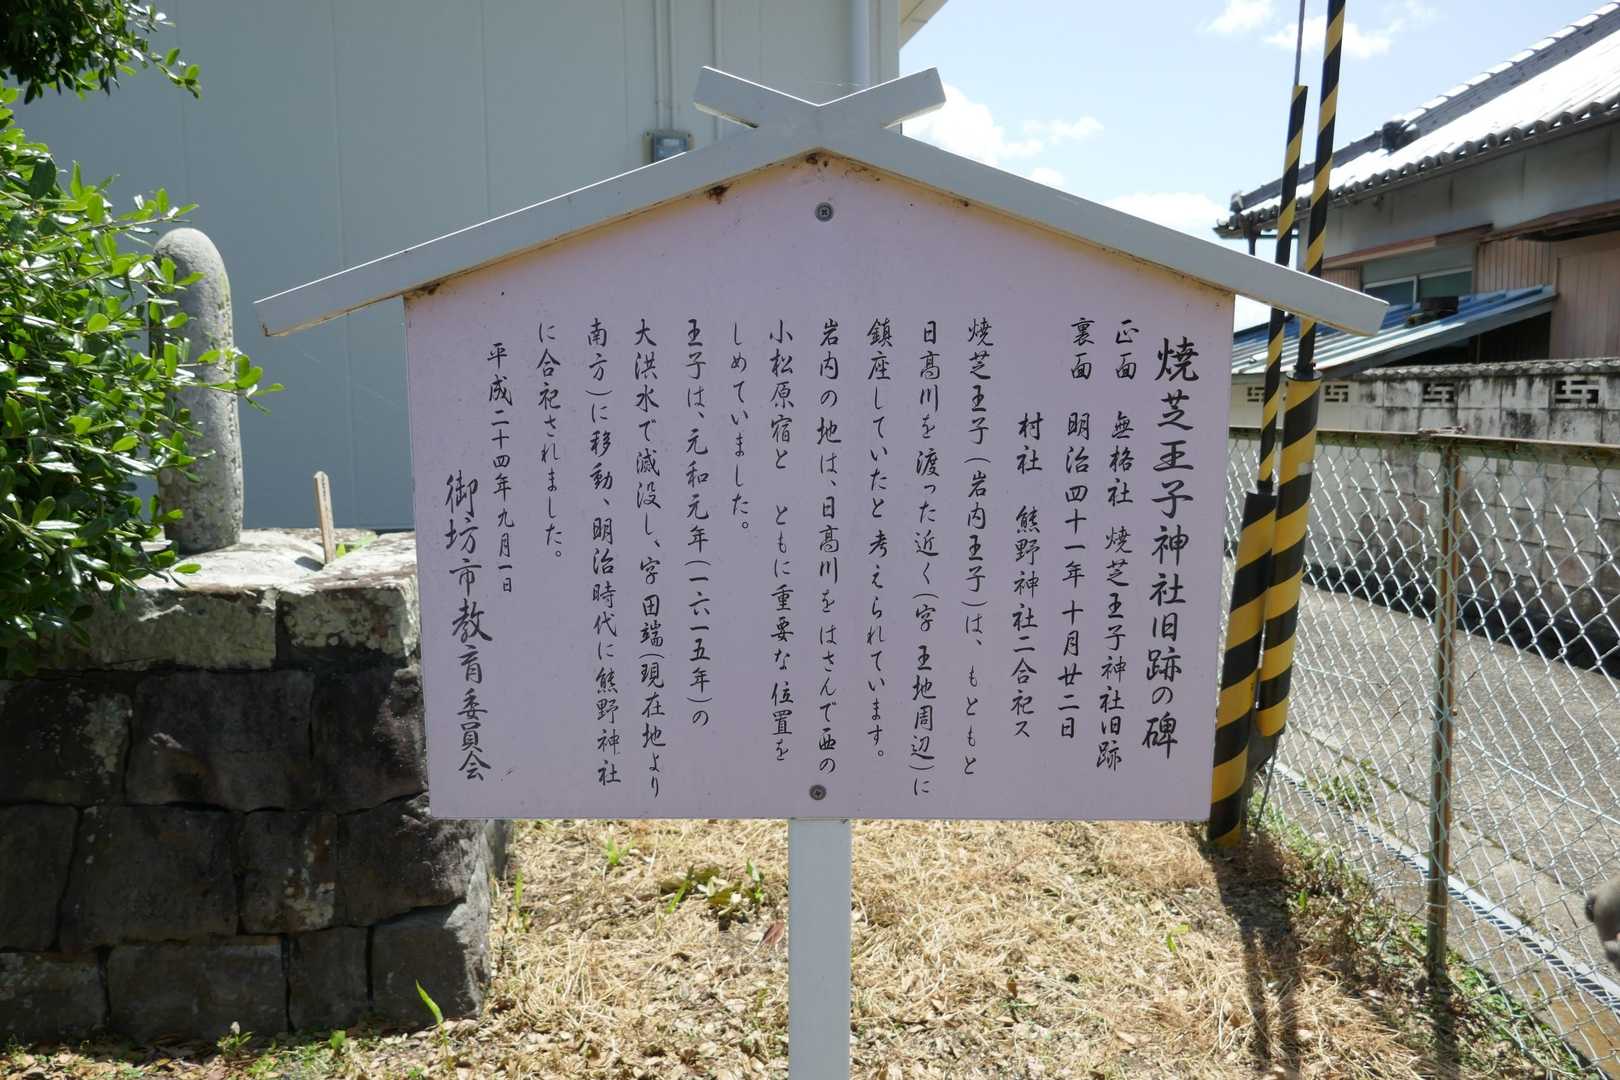 焼芝王子神社旧跡の碑
正面　無格社　焼芝王子神社旧跡
裏面　明治四十一年十月廿二日
村社　熊野神社二合祀ス
焼芝王子(岩内王子)は、もともと
日高川を渡った近く(字 王地周辺)に
鎮座していたと考えられています。
岩内の地は、日高川をはさんで西の
小松原宿と　ともに重要な位置を
しめていました。
王子は、元和元年(一六一五年)の
大洪水で滅没し、字田端(現在地より
南方)に移動、明治時代に熊野神社
に合祀されました。
平成二十四年九月一日
御坊市教育委員会